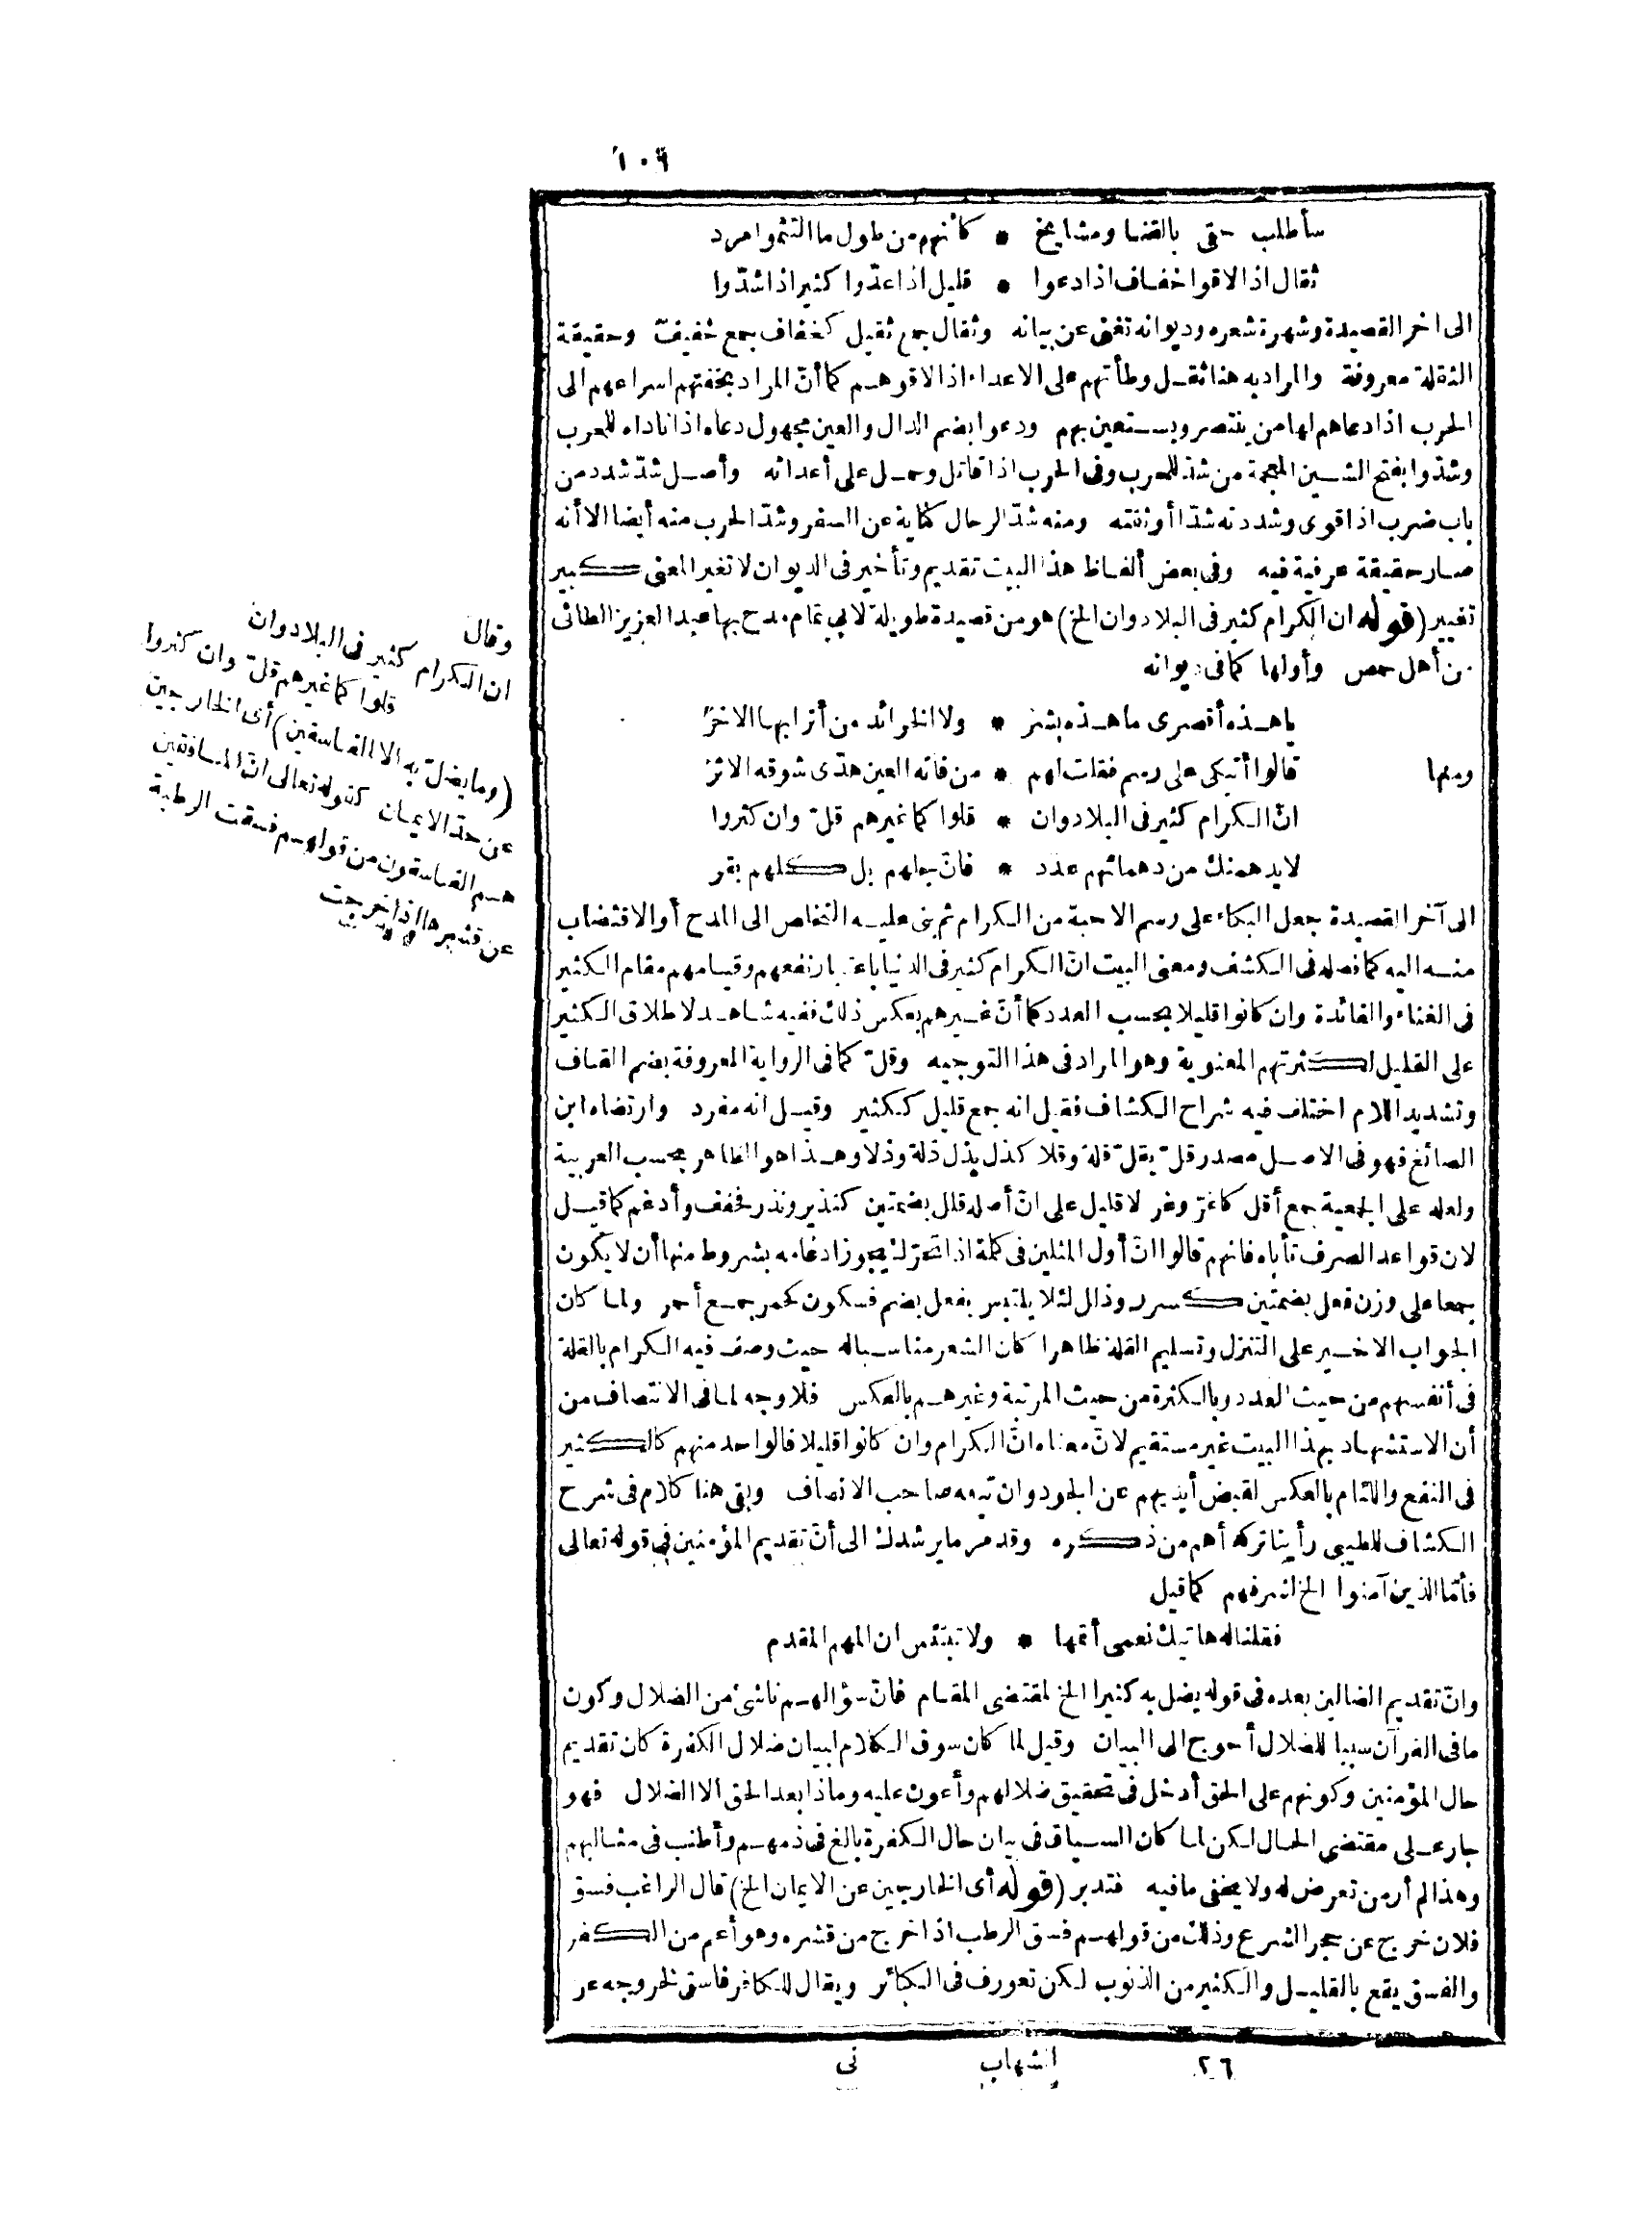 ١٠٩
سأطلب حقى بالقنا ومشايخ * كأنهم من طول ما التثموا مرد
ثقال اذا لاقوا خفاف اذا دعوا * قليل اذا عدّوا كثير اذا شدّوا
الى اخر القصيدة وشهرة شعره وديوانه تغنى عن بيانه وثقال جمع ثقيل كخفاف جمع خفيف وحقيقة
الثقل معروفة والمراد به هنا ثقل وطأتهم على الاعداء اذا لاقوهم كما أنّ المراد بخفتهم اسراعهم الى
الحرب اذا دعاهم لها من ينتصر ويستعين بهم ودعوا بضم الدال والعين مجهول دعاه اذا ناداه للحرب
وشدّوا بفتح الشين المعجمة من شدّ للحرب وفى الحرب اذا قاتل وحمل على أعدائه وأصل شدّ شدد من
باب ضرب اذا قوى وشددته شدّا أوثقته ومنه شدّ الرحال كناية عن السفر وشدّ الحرب منه أيضا الا أنه
صار حقيقة عرفية فيه وفى بعض ألفاظ هذا البيت تقديم وتأخير فى الديوان لا تغير المعنى كبير
تغيير (قوله ان الكرام كثير فى البلاد وان الخ) هو من قصيدة طويلة لابى تمام مدح بها عبد العزيز الطائى
من أهل حمص وأولها كما فى ديوانه
يا هذه أقصرى ما هذه بشر * ولا الخرائد من أترابها الاخر
ومنها قالوا أتبكى على رسم فقلت لهم * من فاته العين هدّى شوقه الاثر
انّ الكرام كثير فى البلاد وان * قلوا كما غيرهم قلّ وان كثروا
لا يدهمنك من دهمائهم عدد * فانّ جلهم بل كلهم بقر
الى آخر القصيدة جعل البكاء على رسم الاحبة من الكرام ثم بنى عليه التخلص الى المدح أو الاقتضاب
منه اليه كما فصله فى الكشف ومعنى البيت انّ الكرام كثير فى الدنيا باعتبار نفعهم وقيامهم مقام الكثير
فى الغناء والفائدة وان كانوا قليلا بحسب العدد كما أنّ غيرهم بعكس ذلك ففيه شاهد لاطلاق الكثير
على القليل لكثرتهم المعنوية وهو المراد فى هذا التوجيه وقلّ كما فى الرواية المعروفة بضم القاف
وتشديد اللام اختلف فيه شراح الكشاف فقيل انه جمع قليل ككثير وقيل انه مفرد وارتضاه ابن
الصائغ فهو فى الاصل مصدر قلّ يقلّ قلة وقلا كذل يذل ذلة وذلا وهذا هو الظاهر بحسب العربية
ولعله على الجمعية جمع أقل كاغرّ وغر لا قليل على انّ أصله قلل بضمتين كنذير ونذر فخفف وأدغم كما قيل
لان قواعد الصرف تأباه فانهم قالوا انّ أول المثلين فى كلمة اذا تحرّك يجوز ادغامه بشروط منها أن لا يكون
جمعا على وزن فعل بضمتين كسرر وذلك لئلا يلتبس بفعل بضم فسكون كحمر جمع أحمر ولما كان
الجواب الاخير على التنزل وتسليم القلة ظاهرا كان الشعر مناسبا له حيث وصف فيه الكرام بالقلة
فى أنفسهم من حيث العدد وبالكثرة من حيث المرتبة وغيرهم بالعكس فلا وجه لما فى الانتصاف من
أن الاستشهاد بهذا البيت غير مستقيم لانّ معناه انّ الكرام وان كانوا قليلا فالواحد منهم كالكثير
فى النفع واللئام بالعكس لقبض أيديهم عن الجود وان تبعه صاحب الانصاف وبقى هنا كلام فى شرح
الكشاف للطيبى رأينا تركه أهم من ذكره وقد مر ما يرشدك الى أنّ تقديم المؤمنين فى قوله تعالى
فأمّا الذين آمنوا الخ لشرفهم كما قيل
فقلنا له هاتيك نعمى أتمها * ولا تبتئس ان المهم المقدم
وانّ تقديم الضالين بعده فى قوله يضل به كثيرا الخ لمقتضى المقام فانّ سؤالهم ناشئ من الضلال وكون
ما فى القرآن سببا للضلال أحوج الى البيان وقيل لما كان سوق الكلام لبيان ضلال الكفرة كان تقديم
حال المؤمنين وكونهم على الحق أدخل فى تحقيق ضلالهم وأعون عليه وماذا بعد الحق الا الضلال فهو
جار على مقتضى الحال لكن لما كان السياق فى بيان حال الكفرة بالغ فى ذمهم وأطنب فى مثالبهم
وهذا لم أر من تعرض له ولا يخفى ما فيه فتدبر (قوله أى الخارجين عن الايمان الخ) قال الراغب فسق
فلان خرج عن حجر الشرع وذلك من قولهم فسق الرطب اذا خرج من قشره وهو أعم من الكفر
والفسق يقع بالقليل والكثير من الذنوب لكن تعورف فى الكبائر ويقال للكافر فاسق لخروجه عن
وقال
ان الكرام كثير فى البلاد وان
قلوا كما غيرهم قلّ وان كثروا
(وما يضلّ به الا الفاسقين) أى الخارجين
عن حدّ الايمان كقوله تعالى انّ المنافقين
هم الفاسقون من قولهم فسقت الرطبة
عن قشرها اذا خرجت
٢٦ الشهاب نى